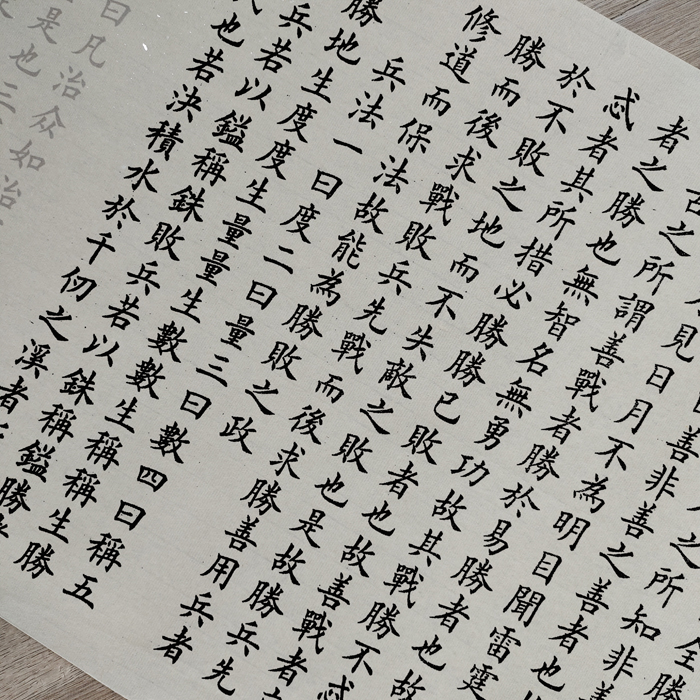 全勝
之所知非善
善非善之善者也
見日月不為明目聞雷霆
古之所謂善戰者勝於易勝者也故
者之勝也無智名無勇功故其戰勝不忒
忒者其所措必勝勝已敗者也故善戰者
於不敗之地而不失敵之敗也是故勝兵先
勝而後求戰敗兵先戰而後求勝善用兵者
修道而保法故能為勝敗之政
兵法一曰度二曰量三曰數四曰稱五
勝地生度度生量量生數數生稱稱生勝
兵若以鎰稱銖敗兵若以銖稱鎰勝者
人也若決積水於千仞之溪者
曰凡治众如治
是也三